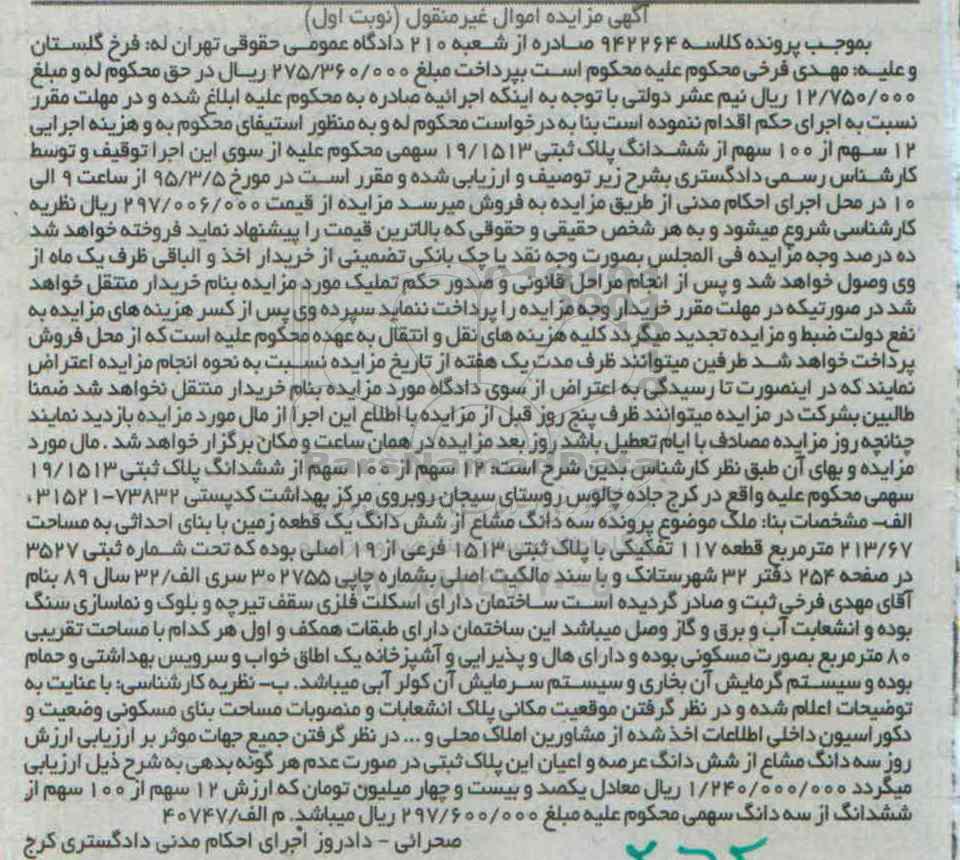 آگهی مزایده اموال غیرمنقول (نوبت اول)
بموجب پرونده کلاسه ۹۴۲۲۶۴ صادره از شعبه ۲۱۰ دادگاه عمومی حقوقی تهران له: فرخ گلستان
و علیه: مهدی فرخی محکوم علیه محکوم است بپرداخت مبلغ ۲۷۵/۳۶۰/۰۰۰ ریال در حق محکوم له و مبلغ
۱۲/۷۵۰/۰۰۰ ریال نیم عشر دولتی با توجه به اینکه اجرائیه صادره به محکوم علیه ابلاغ شده و در مهلت مقرر
نسبت به اجرای حکم اقدام ننموده است بنا به درخواست محکوم له و به منظور استیفای محکوم به و هزینه اجرایی
۱۲ سهم از ۱۰۰ سهم از ششدانگ پلاک ثبتی ۱۹/۱۵۱۳ سهمی محکوم علیه از سوی این اجرا توقیف و توسط
کارشناس رسمی دادگستری بشرح زیر توصیف و ارزیابی شده و مقرر است در مورخ ۹۵/۳/۵ از ساعت ۹ الی
۱۰ در محل اجرای احکام مدنی از طریق مزایده به فروش میرسد مزایده از قیمت ۲۹۷/۰۰۶/۰۰۰ ریال نظریه
کارشناسی شروع میشود و به هر شخص حقیقی و حقوقی که بالاترین قیمت را پیشنهاد نماید فروخته خواهد شد
ده درصد وجه مزایده فی المجلس بصورت وجه نقد یا چک بانکی تضمینی از خریدار اخذ و الباقی ظرف یک ماه از
وی وصول خواهد شد و پس از انجام مراحل قانونی و صدور حکم تملیک مورد مزایده بنام خریدار منتقل خواهد
شد در صورتیکه در مهلت مقرر خریدار وجه مزایده را پرداخت ننماید سپرده وی پس از کسر هزینه های مزایده به
نفع دولت ضبط و مزایده تجدید میگردد کلیه هزینه های نقل و انتقال به عهده محکوم علیه است که از محل فروش
پرداخت خواهد شد طرفین میتوانند ظرف مدت یک هفته از تاریخ مزایده نسبت به نحوه انجام مزایده اعتراض
نمایند که در اینصورت تا رسیدگی به اعتراض از سوی دادگاه مورد مزایده بنام خریدار منتقل نخواهد شد ضمنا
طالبین بشرکت در مزایده میتوانند ظرف پنج روز قبل از مزایده با اطلاع این اجرا از مال مورد مزایده بازدید نمایند
چنانچه روز مزایده مصادف با ایام تعطیل باشد روز بعد مزایده در همان ساعت و مکان برگزار خواهد شد . مال مورد
مزایده و بهای آن طبق نظر کارشناس بدین شرح است: ۱۲ سهم از ۱۰۰ سهم از ششدانگ پلاک ثبتی ۱۹/۱۵۱۳
سهمی محکوم علیه واقع در کرج جاده چالوس روستای سیجان روبروی مرکز بهداشت کدپستی ۷۳۸۳۲-۳۱۵۲۱ ،
الف- مشخصات بنا: ملک موضوع پرونده سه دانگ مشاع از شش دانگ یک قطعه زمین با بنای احداثی به مساحت
۲۱۳/۶۷ مترمربع قطعه ۱۱۷ تفکیکی با پلاک ثبتی ۱۵۱۳ فرعی از ۱۹ اصلی بوده که تحت شماره ثبتی ۳۵۲۷
در صفحه ۲۵۴ دفتر ۳۲ شهرستانک و با سند مالکیت اصلی بشماره چاپی ۳۰۲۷۵۵ سری الف/۳۲ سال ۸۹ بنام
آقای مهدی فرخی ثبت و صادر گردیده است ساختمان دارای اسکلت فلزی سقف تیرچه و بلوک و نماسازی سنگ
بوده و انشعابت آب و برق و گاز وصل میباشد این ساختمان دارای طبقات همکف و اول هر کدام با مساحت تقریبی
۸۰ مترمربع بصورت مسکونی بوده و دارای هال و پذیرایی و آشپزخانه یک اطاق خواب و سرویس بهداشتی و حمام
بوده و سیستم گرمایش آن بخاری و سیستم سرمایش آن کولر آبی میباشد. ب- نظریه کارشناسی: با عنایت به
توضیحات اعلام شده و در نظر گرفتن موقعیت مکانی پلاک انشعابات و منصوبات مساحت بنای مسکونی وضعیت و
دکوراسیون داخلی اطلاعات اخذ شده از مشاورین املاک محلی و ... در نظر گرفتن جمیع جهات موثر بر ارزیابی ارزش
روز سه دانگ مشاع از شش دانگ عرصه و اعیان این پلاک ثبتی در صورت عدم هر گونه بدهی به شرح ذیل ارزیابی
میگردد ۱/۲۴۰/۰۰۰/۰۰۰ ریال معادل یکصد و بیست و چهار میلیون تومان که ارزش ۱۲ سهم از ۱۰۰ سهم از
ششدانگ از سه دانگ سهمی محکوم علیه مبلغ ۲۹۷/۶۰۰/۰۰۰ ریال میباشد. م الف/۴۰۷۴۷
صحرائی - دادروز اجرای احکام مدنی دادگستری کرج